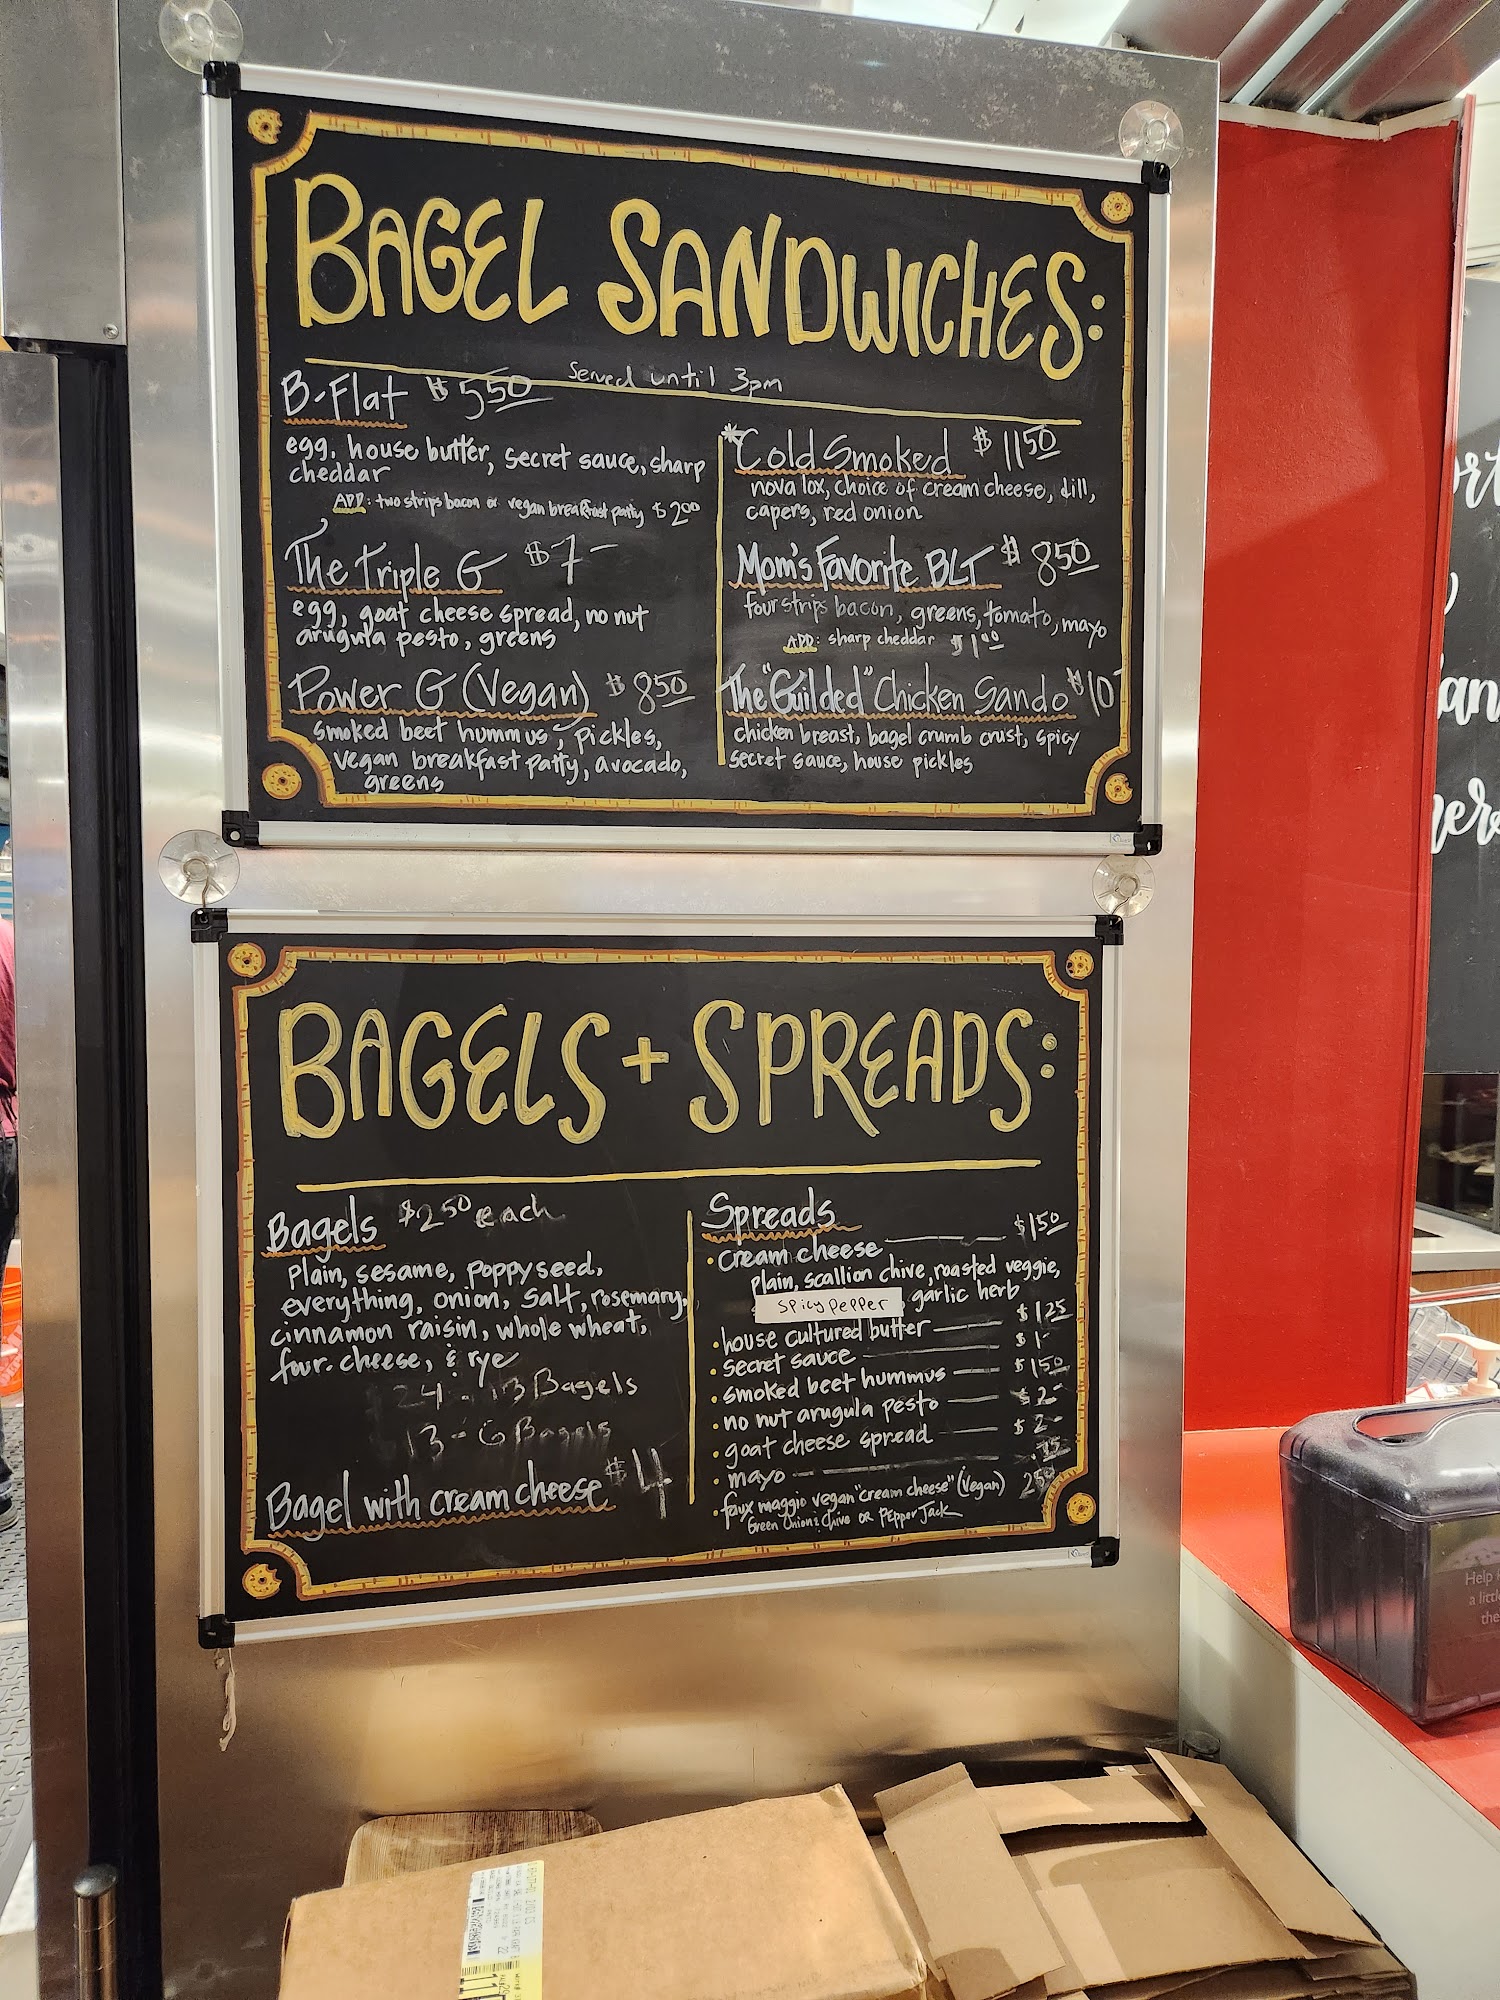 BAGEL SANDWICHES:
Served until 3pm
B-Flat $5.50
egg, house butter, secret sauce, sharp
cheddar
ADD: two strips bacon or vegan breakfast patty $2.00
The Triple G $7-
egg, goat cheese spread, no nut
arugula pesto, greens
Power G (Vegan) $8.50
smoked beet hummus, pickles,
vegan breakfast patty, avocado,
greens
*Cold Smoked $11.50
nova lox, choice of cream cheese, dill,
capers, red onion
Mom's Favorite BLT $8.50
four strips bacon, greens, tomato, mayo
ADD: sharp cheddar $1.00
The "Guilded" Chicken Sando $10
chicken breast, bagel crumb crust, spicy
secret sauce, house pickles
BAGELS + SPREADS:
Bagels $2.50 each
plain, sesame, poppyseed,
everything, onion, salt, rosemary,
cinnamon raisin, whole wheat,
four. cheese, & rye
24 - 13 Bagels
13 - 6 Bagels
Bagel with cream cheese $4
Spreads
•cream cheese $1.50
plain, scallion chive, roasted veggie,
spicy pepper, garlic herb
•house cultured butter $1.25
•secret sauce $1-
•smoked beet hummus $1.50
•no nut arugula pesto $2-
•goat cheese spread $2-
•mayo .75
•faux maggio vegan "cream cheese" (vegan)
Green Onion & Chive or Pepper Jack
Help
a little
the